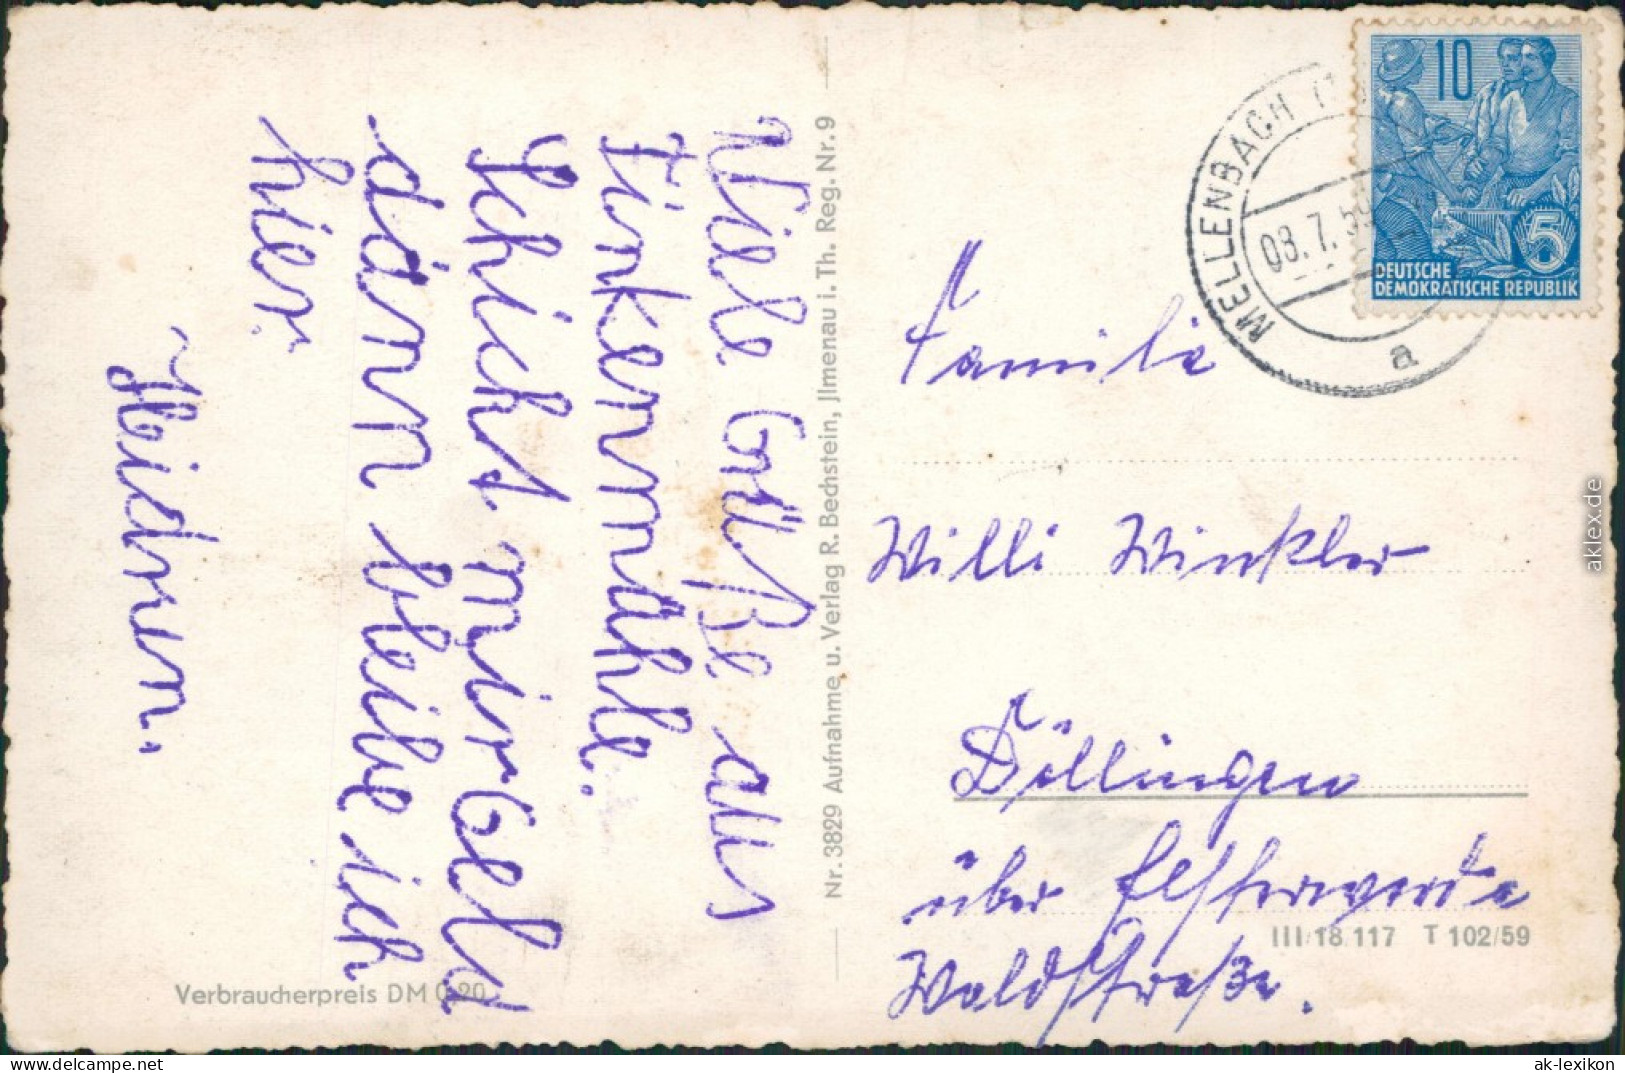 Viele Grüße aus
Finkenmühle.
Schickt mir Geld
dann bleibe ich
hier.
Heidrun.
Nr. 3829 Aufnahme u. Verlag R. Bechstein, Jlmenau i. Th. Reg. Nr. 9
Verbraucherpreis DM 0,20
MELLENBACH
08.7.59
a
10
5
DEUTSCHE
DEMOKRATISCHE REPUBLIK
Familie
Willi Winkler
Döllingen
über Elsterwerda
III/18/117 T 102/59
Waldstraße.
aklex.de
ak-lexikon